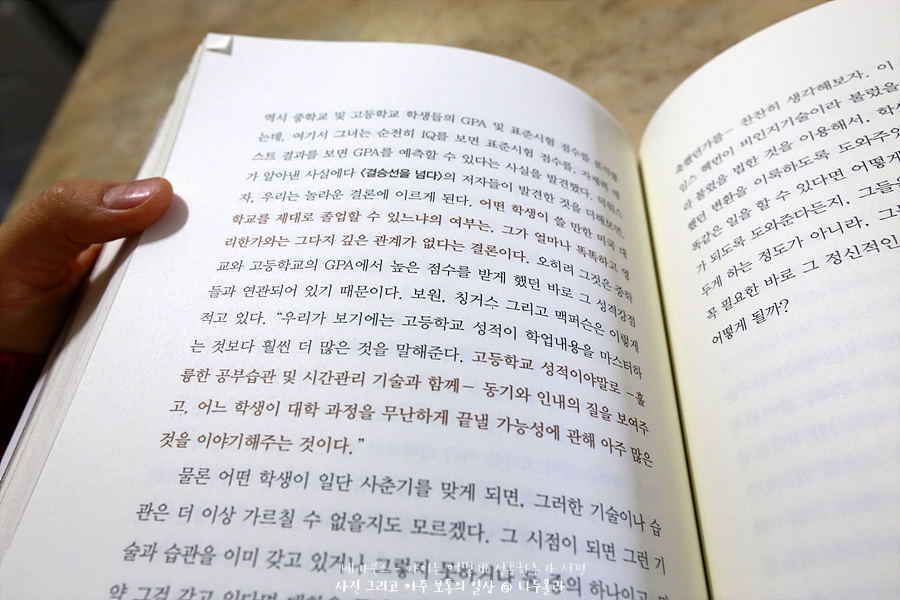 역시 중학교 및 고등학교 학생들의 GPA 및 표준시험 점수를
는데, 여기서 그녀는 순전히 IQ를 보면 표준시험 점수를, 자제력 테
스트 결과를 보면 GPA를 예측할 수 있다는 사실을 발견했다. 더워스
가 알아낸 사실에다 〈결승선을 넘다〉의 저자들이 발견한 것을 더해보면,
자, 우리는 놀라운 결론에 이르게 된다. 어떤 학생이 쓸 만한 미국 대
학교를 제대로 졸업할 수 있느냐의 여부는, 그가 얼마나 똑똑하고 영
리한가와는 그다지 깊은 관계가 없다는 결론이다. 오히려 그것은 중학
교와 고등학교의 GPA에서 높은 점수를 받게 했던 바로 그 성격강점
들과 연관되어 있기 때문이다. 보원, 칭거스 그리고 맥퍼슨은 이렇게
적고 있다. “우리가 보기에는 고등학교 성적이 학업내용을 마스터하
는 것보다 훨씬 더 많은 것을 말해준다. 고등학교 성적이야말로 –훌
륭한 공부습관 및 시간관리 기술과 함께– 동기와 인내의 질을 보여주
고, 어느 학생이 대학 과정을 무난하게 끝낼 가능성에 관해 아주 많은
것을 이야기해주는 것이다.”
물론 어떤 학생이 일단 사춘기를 맞게 되면, 그러한 기술이나 습
관은 더 이상 가르칠 수 없을지도 모르겠다. 그 시점이 되면 그런 기
술과 습관을 이미 갖고 있거나 의 하나이고
약 그걸 갖고 있다면
찬찬히 생각해보자. 이
워스 헤먼이 비인지기술이라 불렀을
라 불렀을 법한 것을 이용해서, 학
했던 변환을 이룩하도록 도와주었
똑같은 일을 할 수 있다면 어떻게
가 되도록 도와준다든지, 그들은
두게 하는 정도가 아니라, 그
꼭 필요한 바로 그 정신적인
어떻게 될까?
아이는 어떻게 성공하는가 서평
사진 그리고 아주 보통의 일상 @ 나두몰라